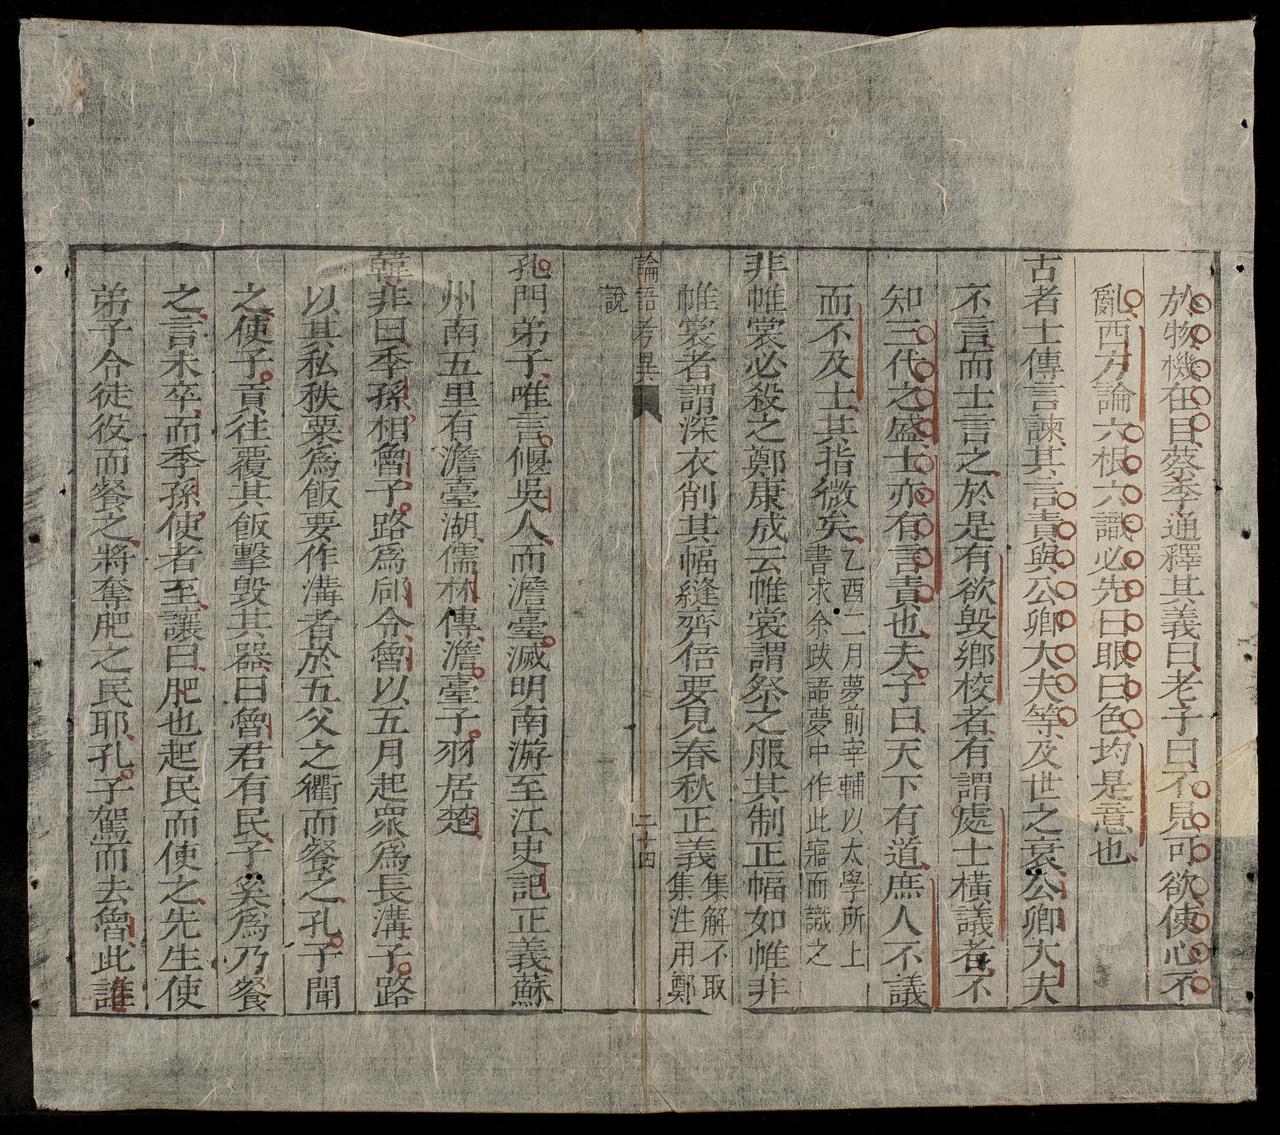 於物機在目蔡季通釋其義曰老子曰不見可欲使心不
亂西方論六根六識必先曰眼曰色均是意也
古者士傳言諫其言責與公卿大夫等及世之衰公卿大夫
不言而士言之於是有欲毀鄉校者有謂處士橫議者不
知三代之盛士亦有言責也夫子曰天下有道庶人不議
而不及士其指微矣乙酉二月夢前宰輔以太學所上
書求余跋語夢中作此寤而識之
非帷裳必殺之鄭康成云帷裳謂祭之服其制正幅如帷非
帷裳者謂深衣削其幅縫齊倍要見春秋正義集解不取
集注用鄭
說
論語考異
二十四
孔門弟子唯言偃吳人而澹臺滅明南游至江史記正義蘇
州南五里有澹臺湖儒林傳澹臺子羽居楚
韓非曰季孫相魯子路爲郈令魯以五月起衆爲長溝子路
以其私秩粟爲飯要作溝者於五父之衢而餐之孔子聞
之使子貢往覆其飯擊毀其器曰魯君有民子奚爲乃餐
之言未卒而季孫使者至讓曰肥也起民而使之先生使
弟子令徒役而餐之將奪肥之民耶孔子駕而去魯此誰